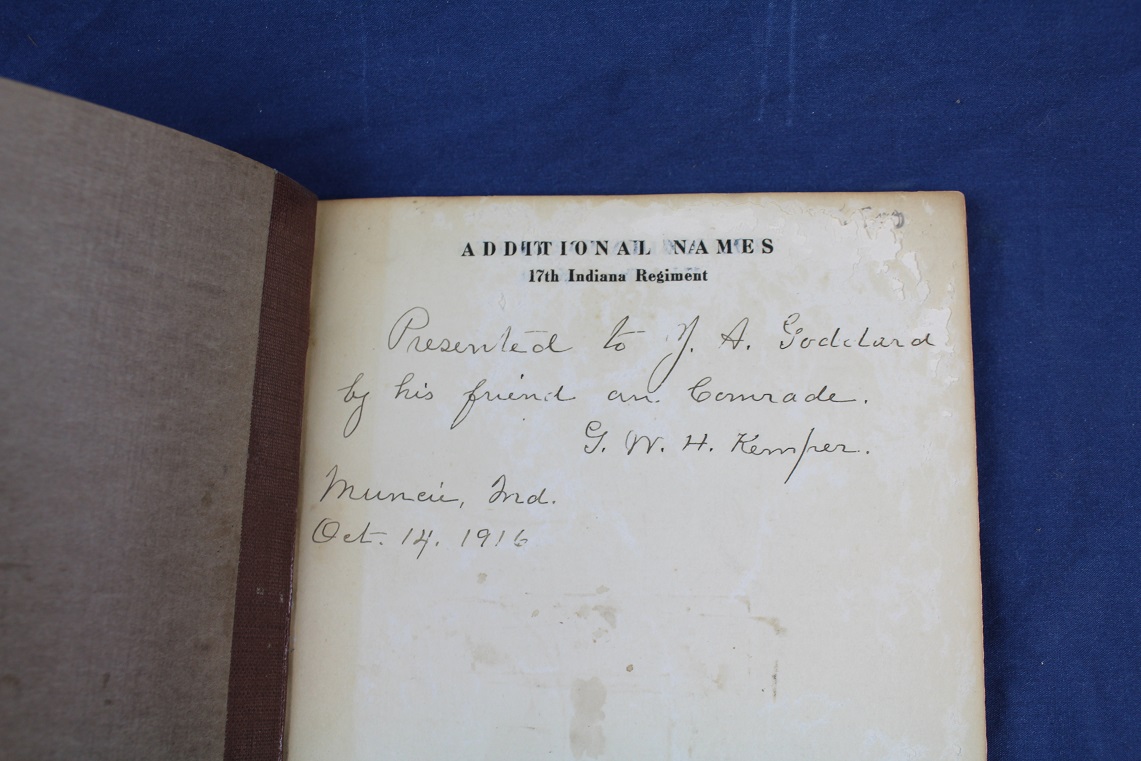 ADDITIONAL NAMES
17th Indiana Regiment
Presented to J. A. Goddard
by his friend an Comrade.
G. W. H. Kemper.
Muncie, Ind.
Oct. 14. 1916